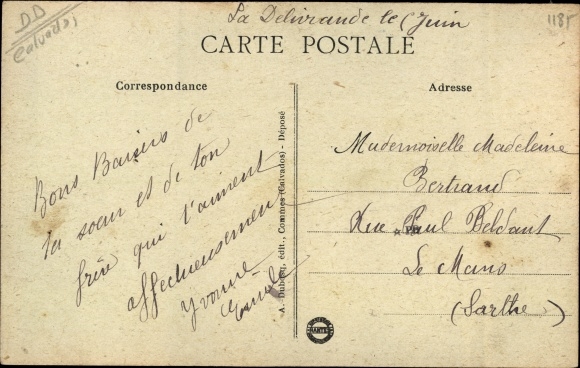 DD
Calvados
La Delivrande le 6 Juin
1185
CARTE POSTALE
Correspondance
Bons Baisers de
ta sœur et de ton
frère qui t'aiment
affectueusement
Yvonne
Emile
A. Dubosq, édit., Commes (Calvados) - Déposé
Adresse
Mademoiselle Madeleine
Bertrand
Rue Paul Beldant
Le Mans
(Sarthe)